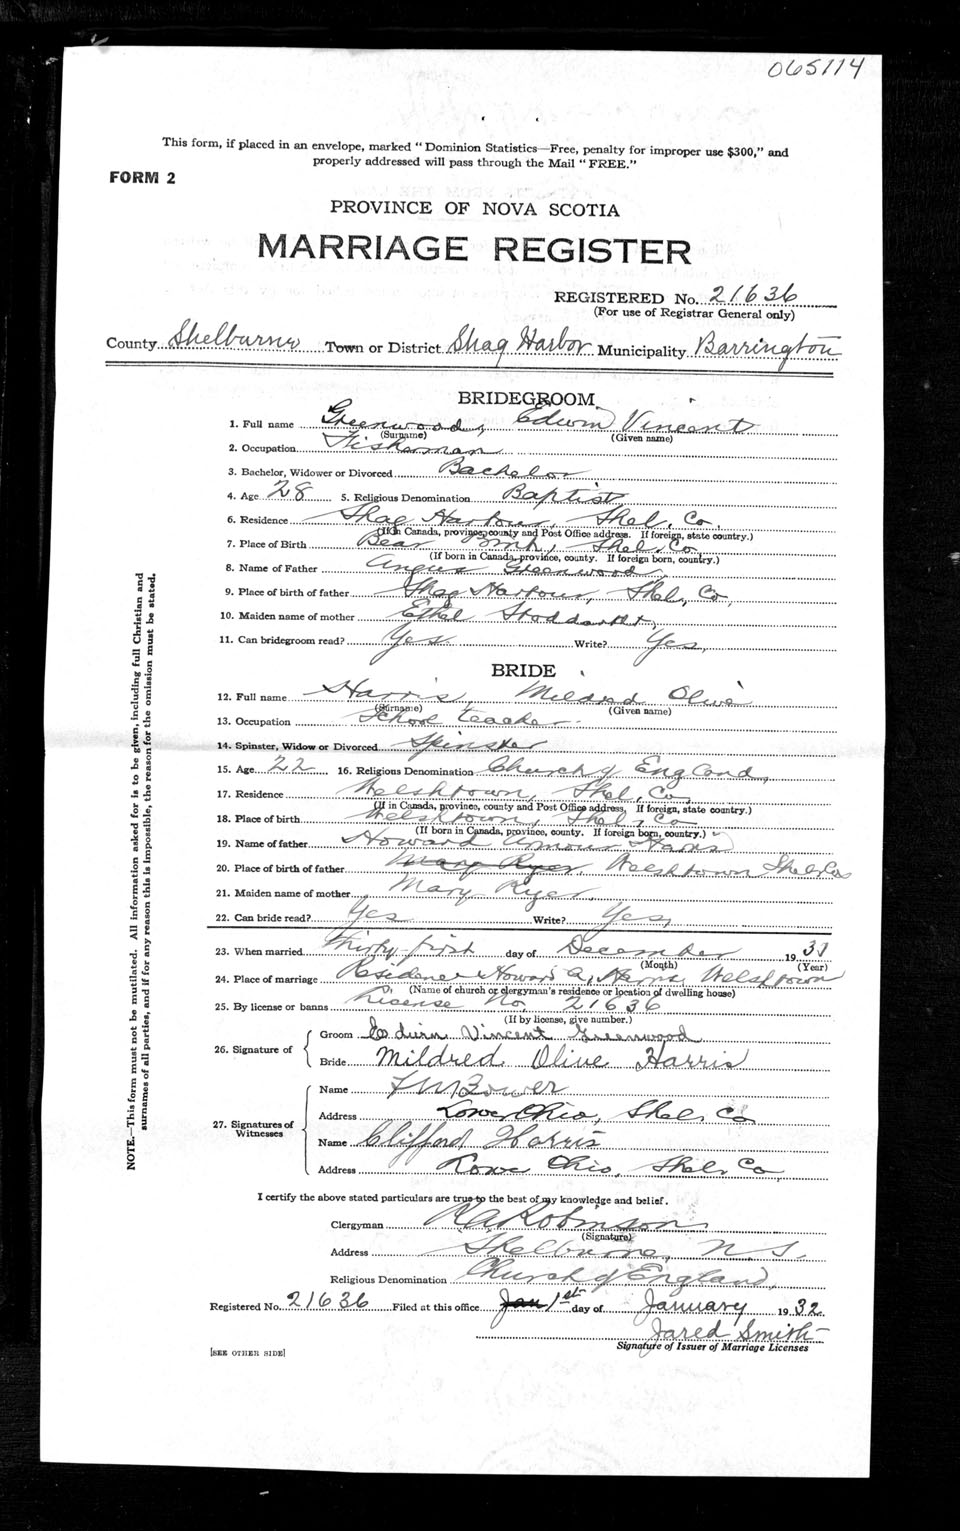 065114
This form, if placed in an envelope, marked "Dominion Statistics—Free, penalty for improper use $300," and
properly addressed will pass through the Mail "FREE."
FORM 2
PROVINCE OF NOVA SCOTIA
MARRIAGE REGISTER
REGISTERED No. 21636
(For use of Registrar General only)
County Shelburne Town or District Shag Harbor Municipality Barrington
BRIDEGROOM
1. Full name Greenwood, Edwin Vincent
(Surname) (Given name)
2. Occupation Fisherman
3. Bachelor, Widower or Divorced Bachelor
4. Age 28 5. Religious Denomination Baptist
6. Residence Shag Harbour, Shel. Co.
(If in Canada, province, county and Post Office address. If foreign, state country.)
7. Place of Birth Bear Shel. Co
(If born in Canada, province, county. If foreign born, country.)
8. Name of Father Angus Greenwood
9. Place of birth of father Shag Harbour, Shel, Co,
10. Maiden name of mother Ethel Stoddart,
11. Can bridegroom read? Yes Write? Yes,
BRIDE
12. Full name Harris, Mildred Olive
(Surname) (Given name)
13. Occupation School teacher
14. Spinster, Widow or Divorced Spinster
15. Age 22 16. Religious Denomination Church of England,
17. Residence Welshtown, Shel, Co,
(If in Canada, province, county and Post Office address, If foreign, state country.)
18. Place of birth Welshtown, Shel, Co
(If born in Canada, province, county. If foreign born, country.)
19. Name of father Howard Armour Harris
20. Place of birth of father Mary Ryer, Welshtown Shel. Co
21. Maiden name of mother Mary Ryer,
22. Can bride read? Yes Write? Yes,
23. When married thirty-first day of December 1931
(Month) (Year)
24. Place of marriage Residence Howard A, Harris, Welshtown
(Name of church or clergyman's residence or location of dwelling house)
25. By license or banns License No, 21636
(If by license, give number.)
26. Signature of
Groom Edwin Vincent Greenwood
Bride Mildred Olive Harris
27. Signatures of Witnesses
Name Bower
Address Lower Ohio, Shel, Co
Name Clifford Harris
Address Lower Ohio, Shel, Co,
I certify the above stated particulars are true to the best of my knowledge and belief.
Clergyman R A Robinson
(Signature)
Address Shelburne, N. S.
Religious Denomination Church of England,
Registered No. 21636 Filed at this office Jan 1st day of January 1932
Jared Smith
Signature of Issuer of Marriage Licenses
[SEE OTHER SIDE]
NOTE.—This form must not be mutilated. All information asked for is to be given, including full Christian and
surnames of all parties, and if for any reason this is impossible, the reason for the omission must be stated.